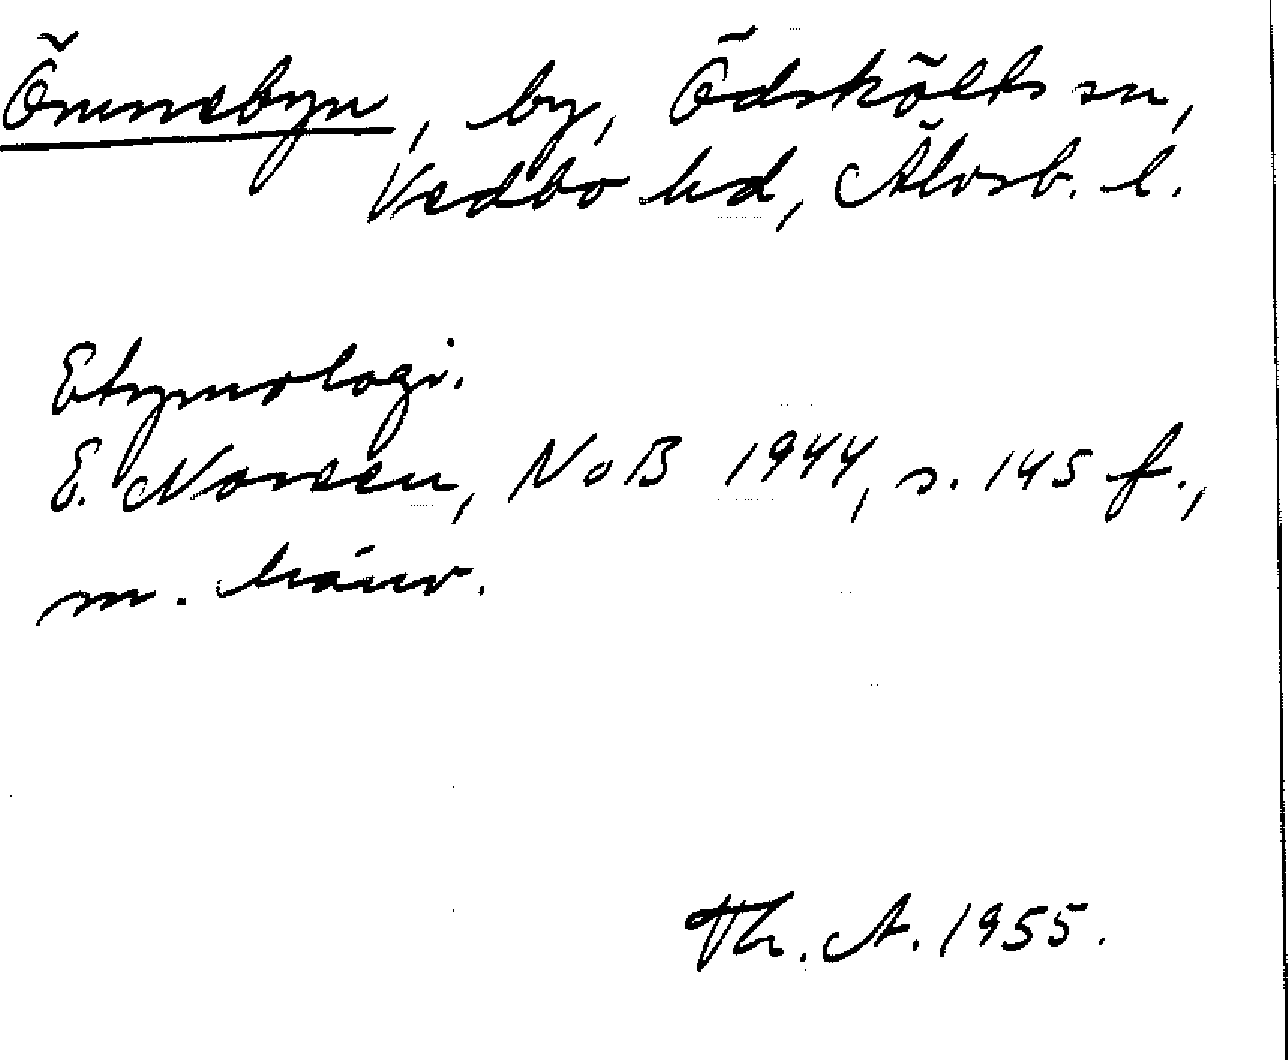 Önnebyn, by, Ödskölts sn,
Vedbo hd, Älvsb. l.
Etymologi.
E. Noreen, NoB 1944, s. 145 f.,
m. hänv.
Th. A. 1955.